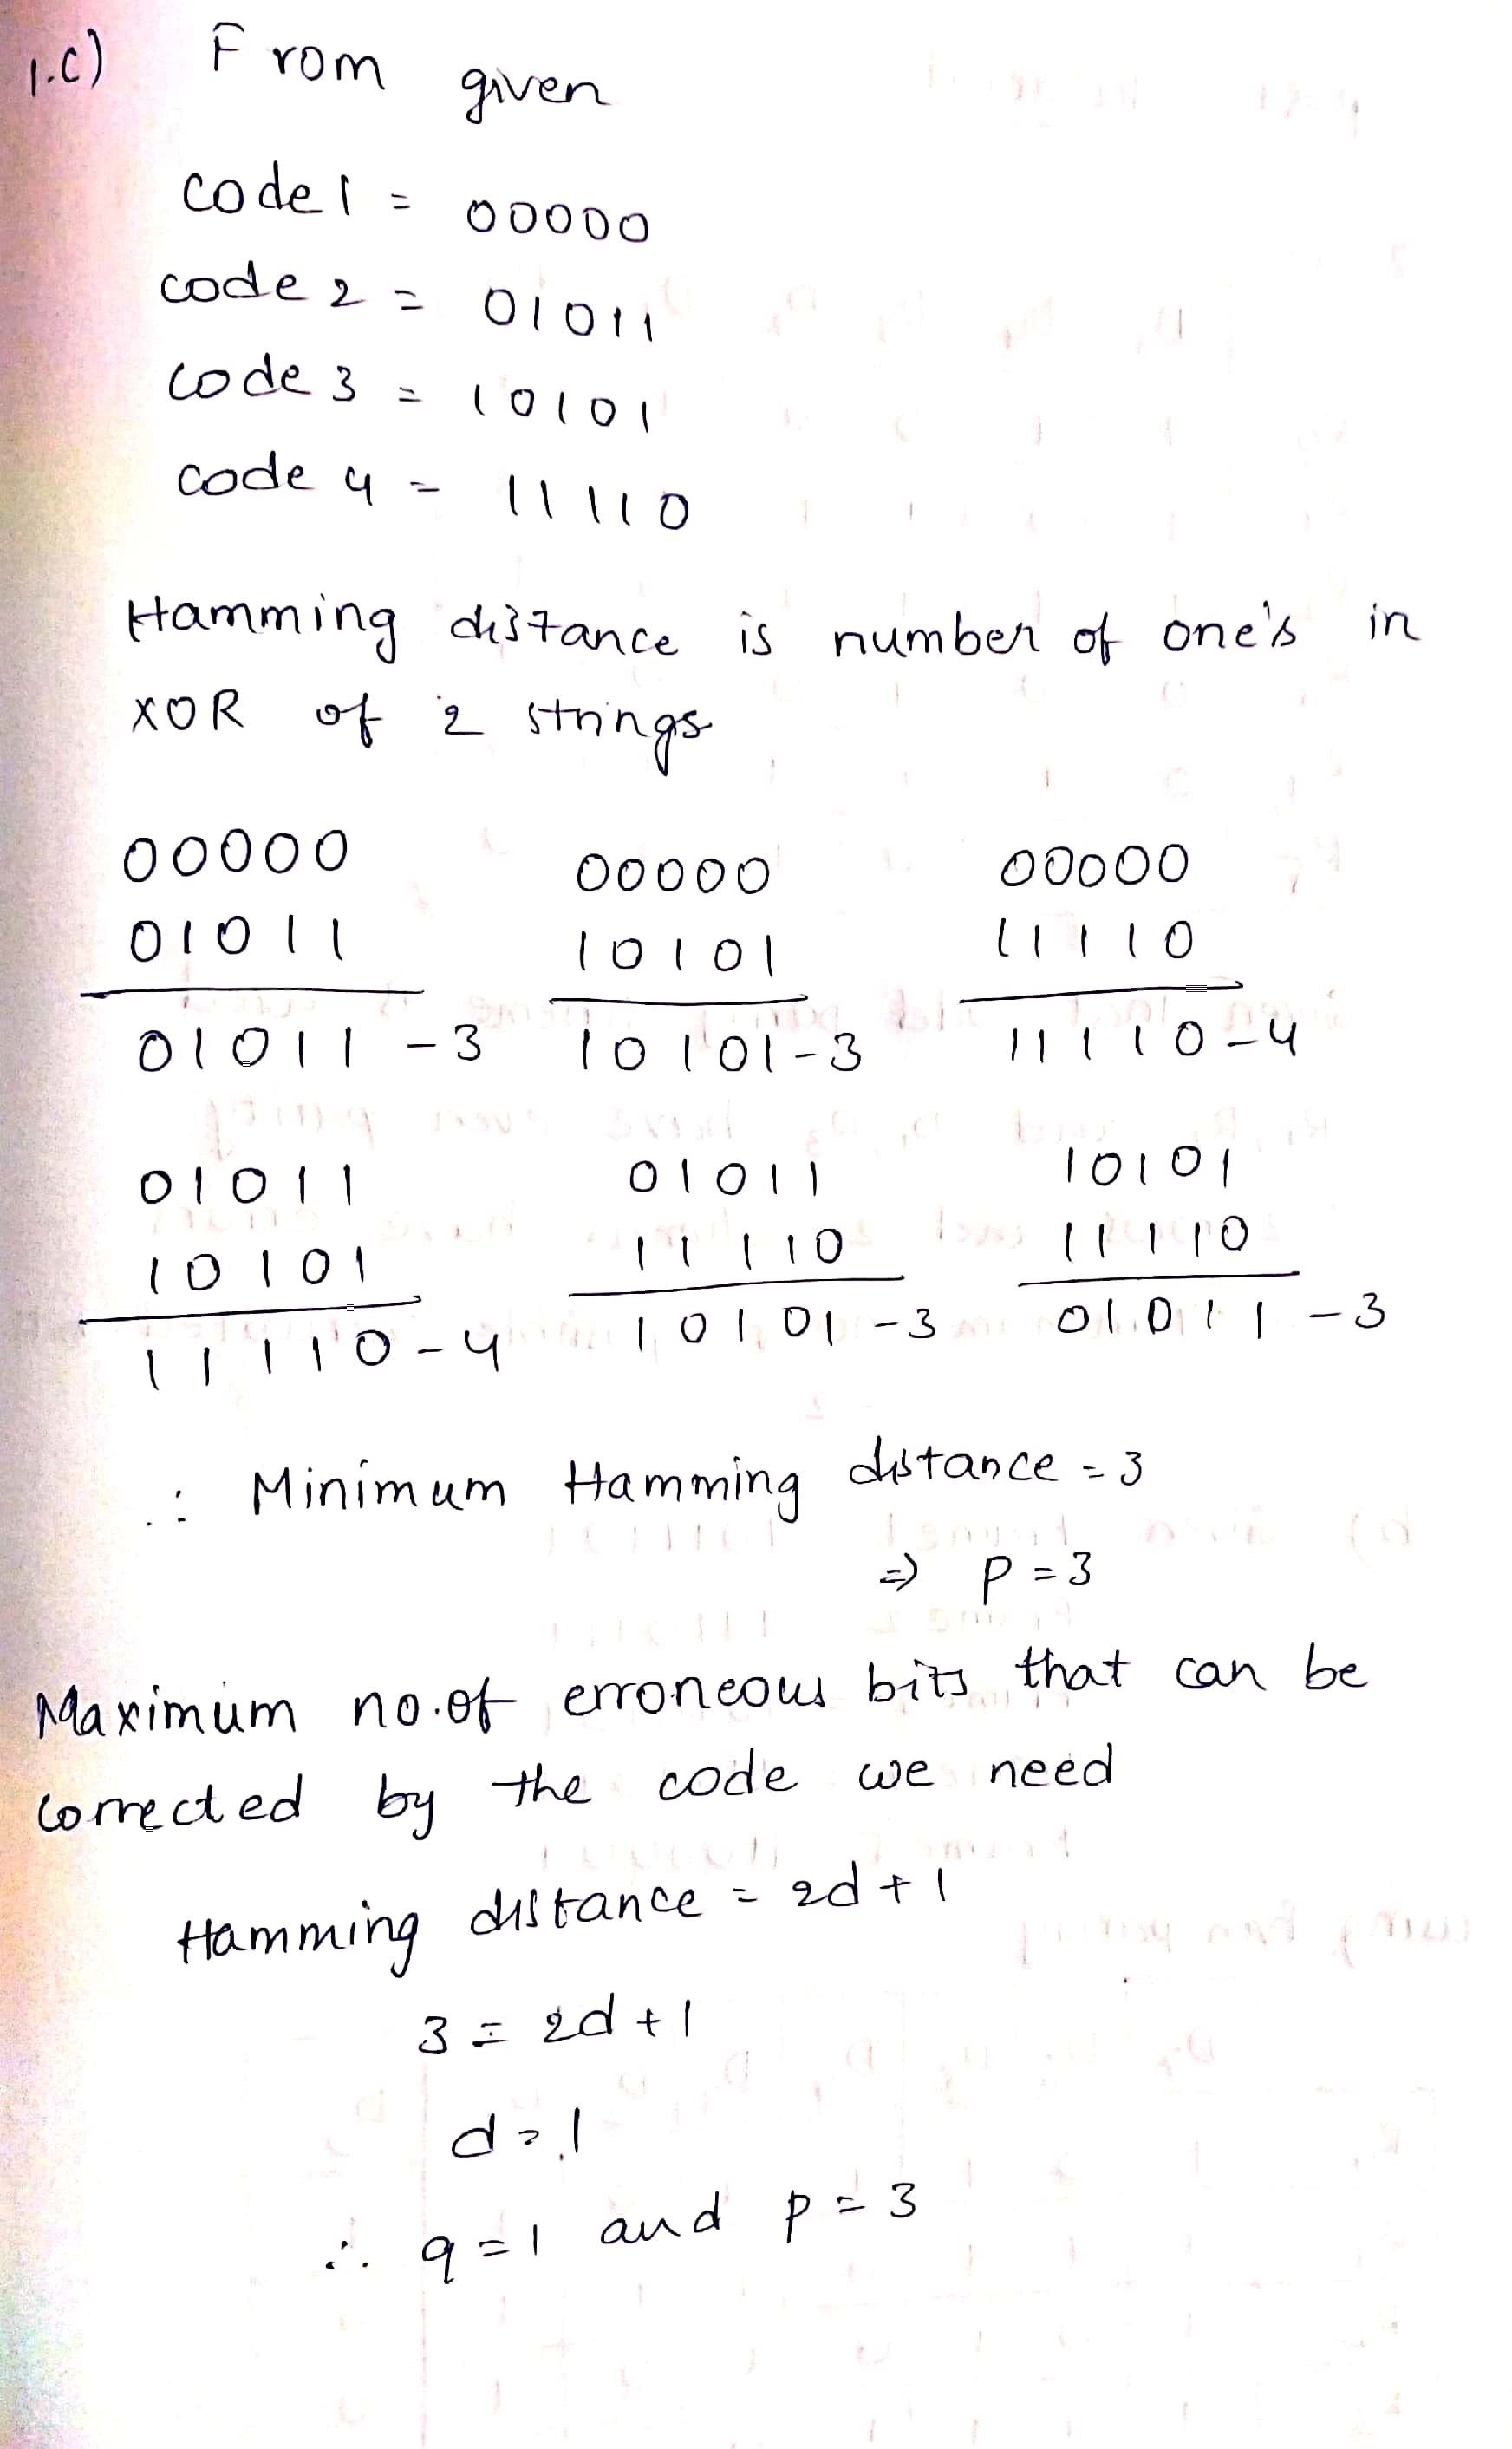 1.c) From given
code1 = 00000
code 2 = 01011
code 3 = 10101
code 4 = 11110
Hamming distance is number of one's in
XOR of 2 strings
00000 00000 00000
01011 10101 11110
01011 - 3 10101 - 3 11110 - 4
01011 01011 10101
10101 11110 11110
11110 - 4 10101 - 3 01011 - 3
∴ Minimum Hamming distance = 3
⇒ P = 3
Maximum no.of erroneous bits that can be
corrected by the code we need
Hamming distance = 2d + 1
3 = 2d + 1
d = 1
∴ q = 1 and p = 3